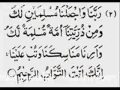 (٢) رَبَّنَا وَاجْعَلْنَا مُسْلِمَيْنِ لَكَ
وَمِنْ ذُرِّيَّتِنَا أُمَّةً مُسْلِمَةً لَكَ
وَأَرِنَا مَنَاسِكَنَا وَتُبْ عَلَيْنَا
إِنَّكَ أَنْتَ التَّوَّابُ الرَّحِيمُ